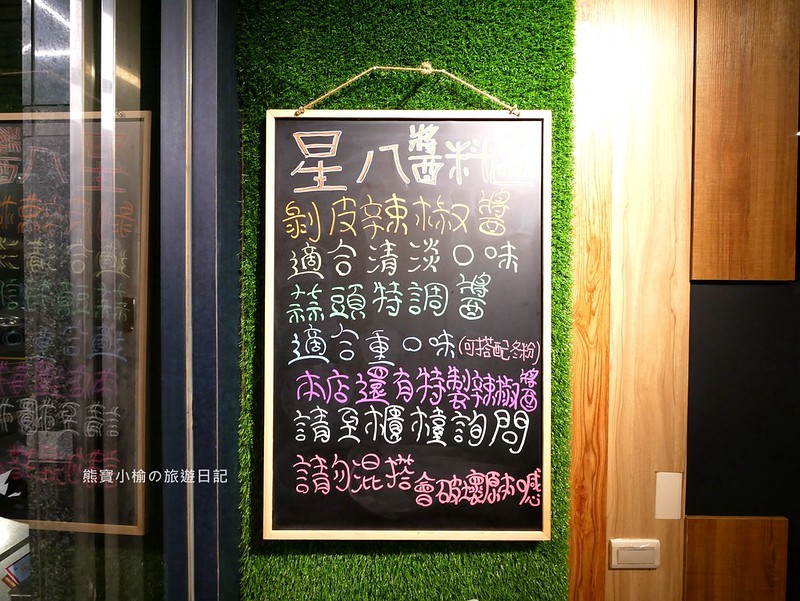 星八醬料
剝皮辣椒醬
適合清淡口味
蒜頭特調醬
適合重口味(可搭配冬粉)
本店還有特製辣椒醬
請至櫃檯詢問
請勿混搭 會破壞原本口感
熊寶小榆の旅遊日記